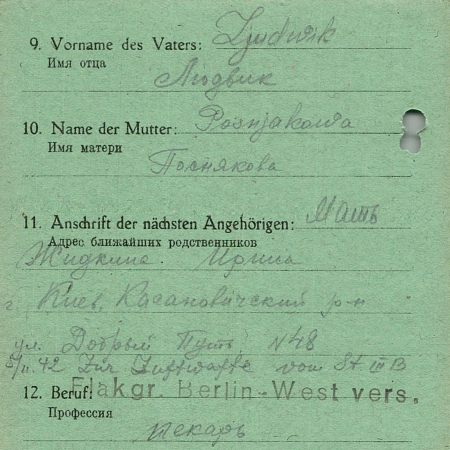 9. Vorname des Vaters: Ljudwik
Имя отца
Людвик
10. Name der Mutter: Posnjakowa
Имя матери
Посnякова
11. Anschrift der nächsten Angehörigen: Мать
Адрес ближайших родственников
Жидкина Ирина
г. Киев, Кагановичский р-н
ул. Добрый Путь N 48
5/II.42 Zur Luftwaffe vom St III B
Flakgr. Berlin-West vers.
12. Beruf:
Профессия
пекарь